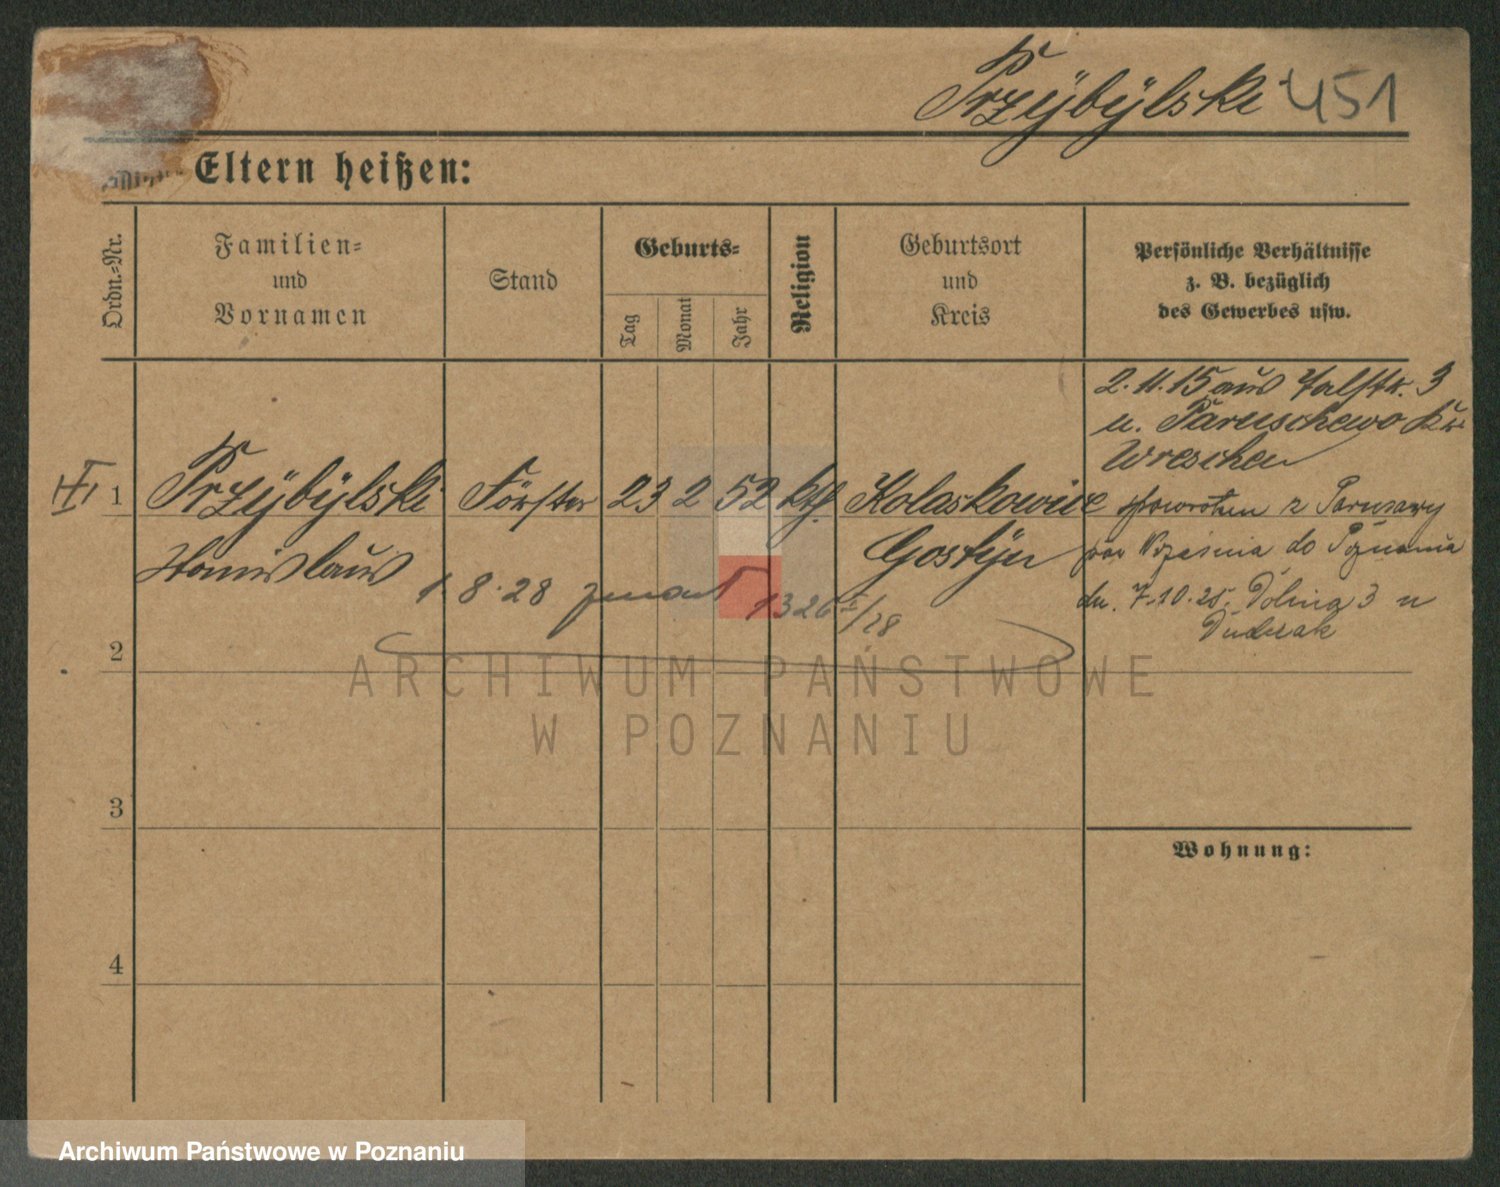 Przÿbÿlski 451
Eltern heißen:
Ordn.-Nr.
Familien-
und
Vornamen
Stand
Geburts-
Tag
Monat
Jahr
Religion
Geburtsort
und
Kreis
Persönliche Verhältnisse
z. B. bezüglich
des Gewerbes usw.
2. 11. 15 aus Talstr. 3
u. Paruschewo Kr.
Wreschen
1 Przÿbÿlski Förster 23 2 52 kth. Kolaskowice
Stanislaus Gostÿn
powrotem z Paruszewy
pow Września do Poznania
dn. 7.10.25. Dolina 3 u
1 8. 28 zmarł 1326 I/28
2
3
4
Wohnung:
ARCHIWUM PAŃSTWOWE
W POZNANIU
Archiwum Państwowe w Poznaniu